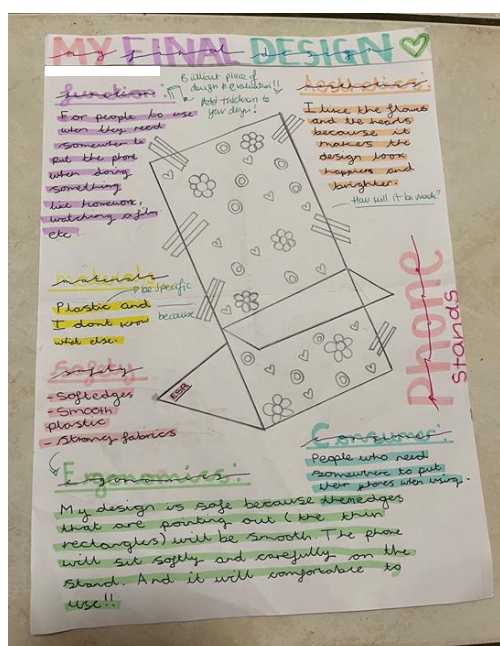 MY FINAL DESIGN
my final design
function:
For people to use
when they need
somewher to
put the phone
when doing
something
like homework,
watching a film
etc
Brilliant piece of
design & evaluation!!
Add thickness to
your design!
Aesthetics:
I like the flowers
and the hearts
because it
makes the
design look
happier and
brighter.
How will it be made?
materials
be specific
Plastic and
because
I dont know
what else.
Safety
- Soft edges
- Smooth
plastic
- Strong fabrics
Phone
stands
Consumer:
People who need
somewhere to put
their phones when using.
Ergonomics:
My design is safe because the edges
that are pointing out (the thin
rectangles) will be smooth. The phone
will sit softly and carefully on the
stand. And it will comfortable to
use!!